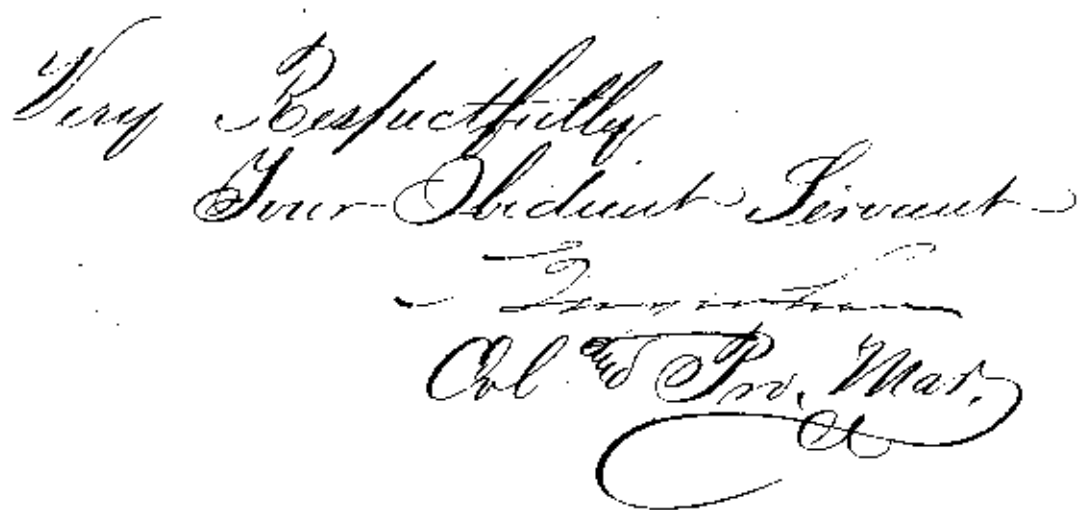 Very Respectfully
Your Obedient Servant
Col and Pro. Mar.